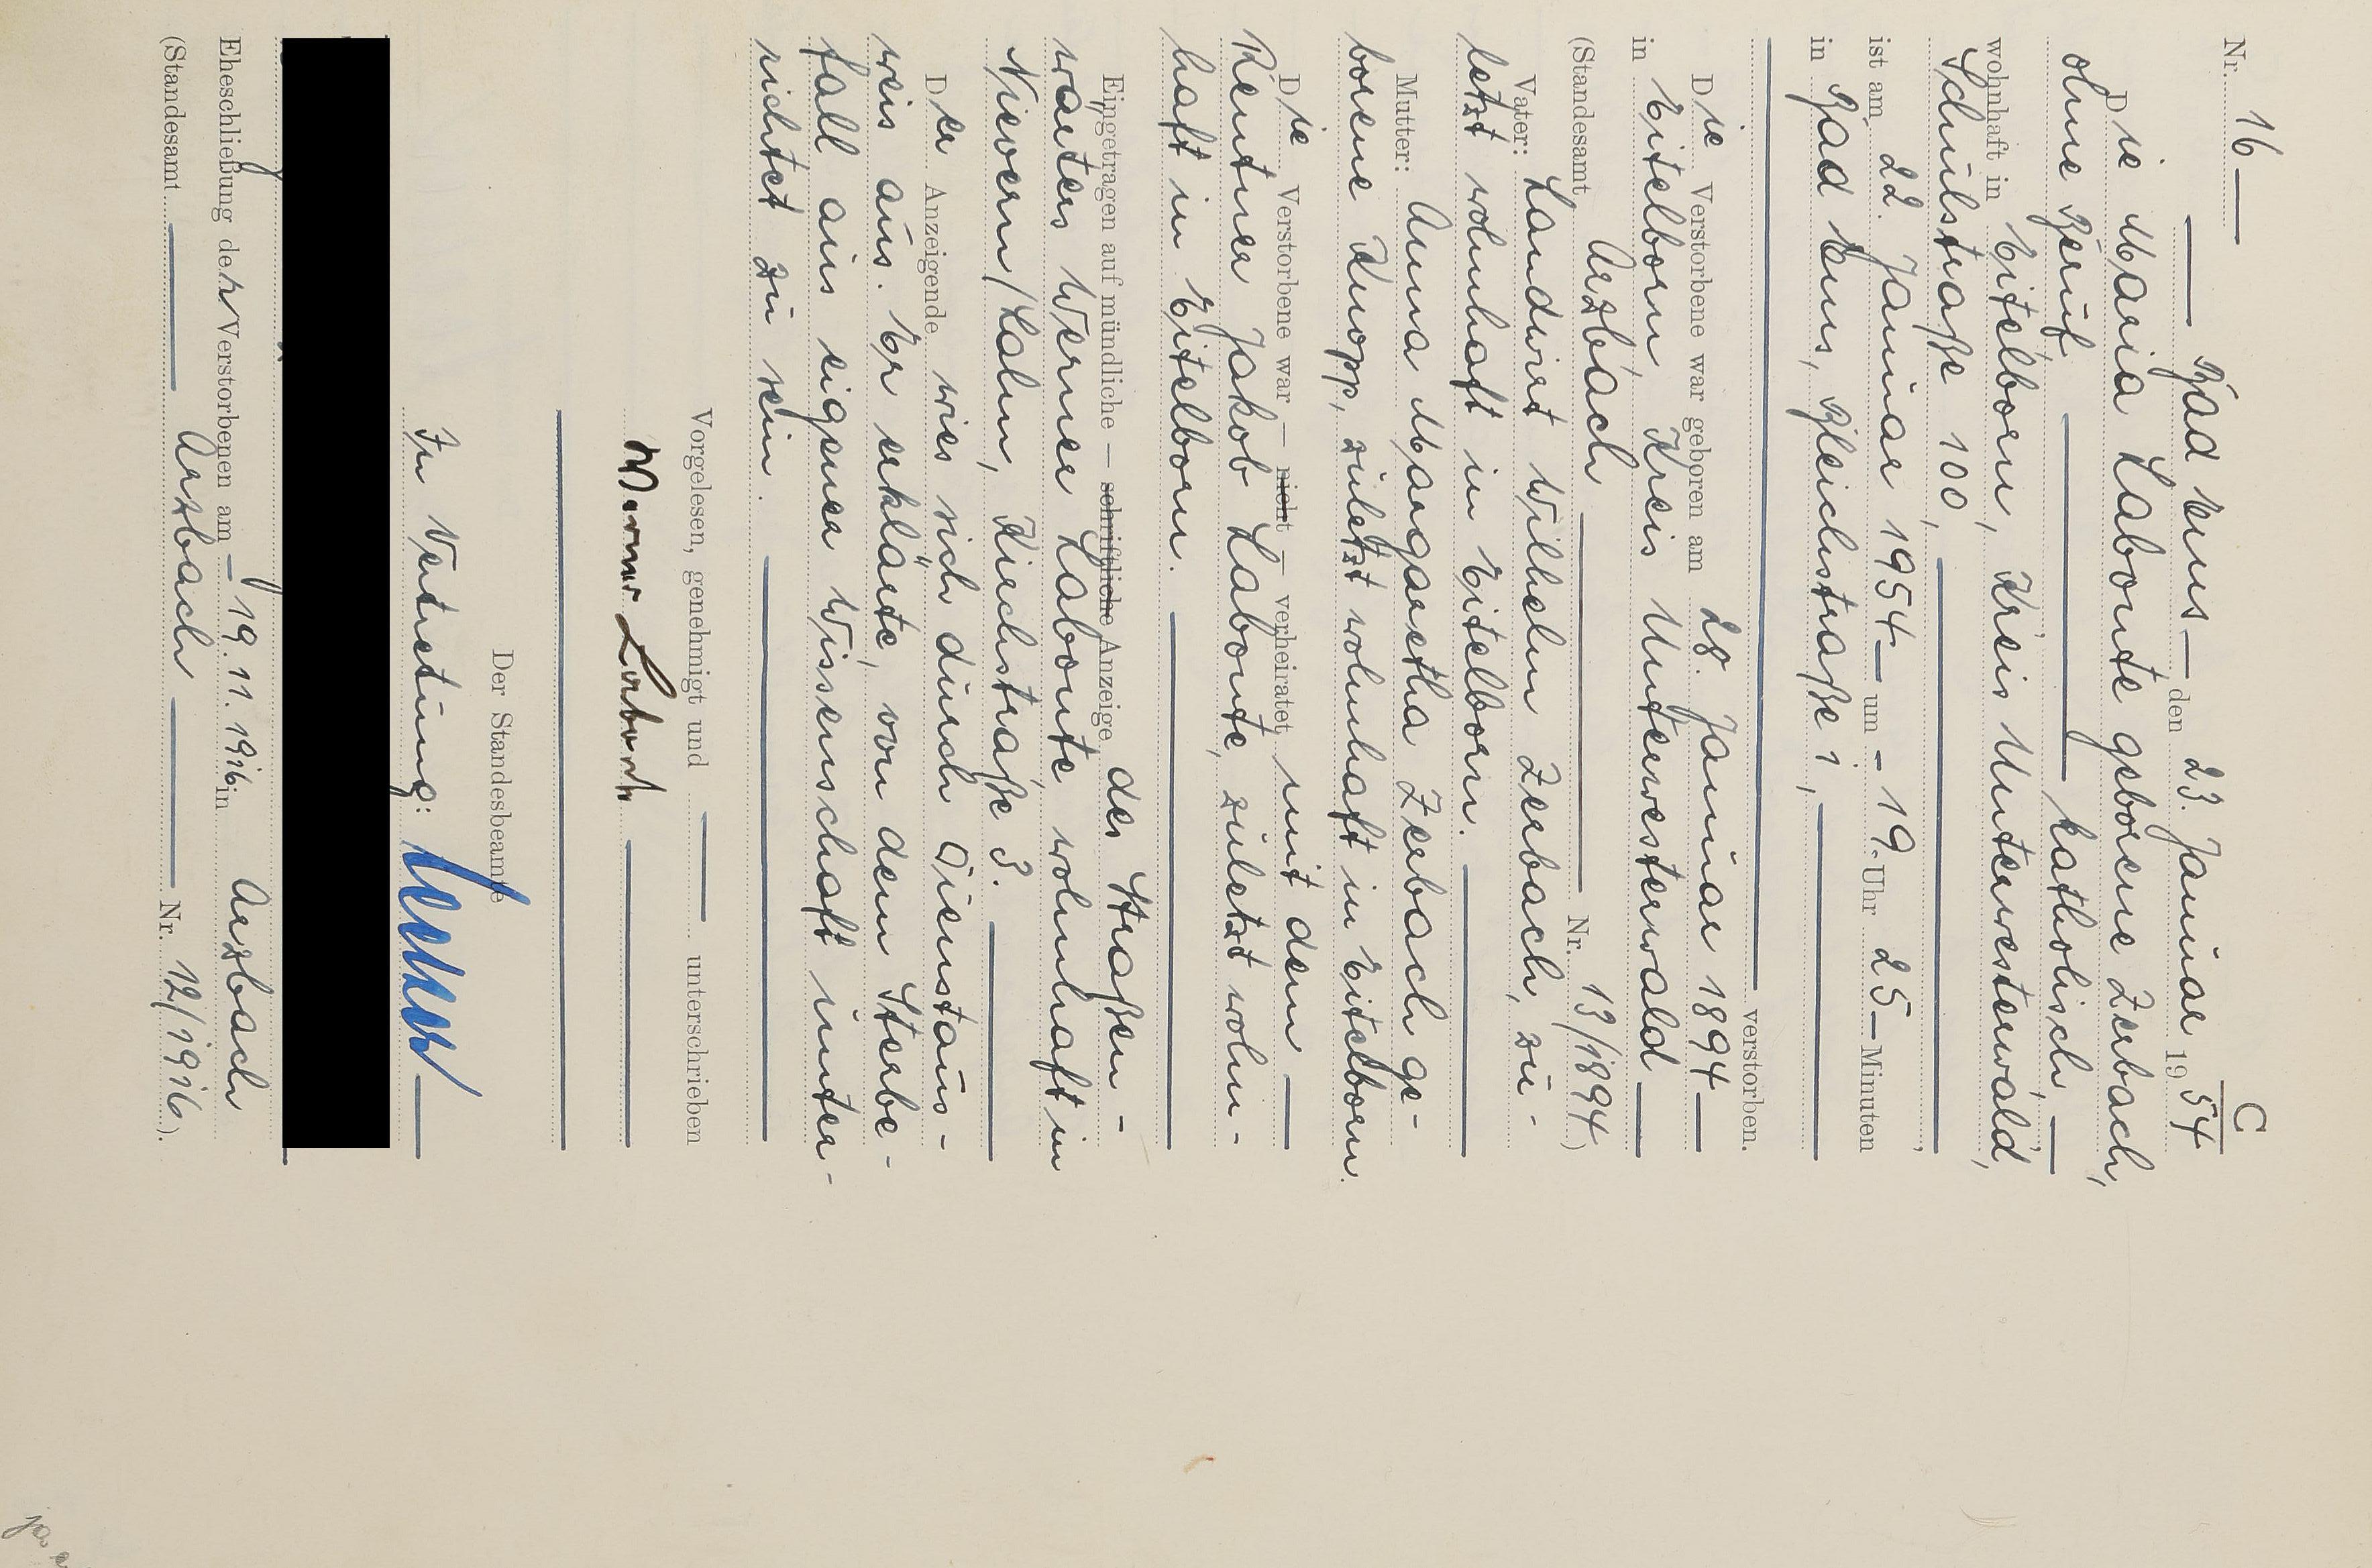 C
Nr. 16
Bad Ems den 23. Januar 1954
Die Maria Labonte geborene Zerbach,
ohne Beruf katholisch,
wohnhaft in Eitelborn, Kreis Unterwesterwald,
Schulstraße 100,
ist am 22. Januar 1954 um 19 Uhr 25 Minuten
in Bad Ems, Bleichstraße 1,
verstorben.
Die Verstorbene war geboren am 28. Januar 1894
in Eitelborn, Kreis Unterwesterwald
(Standesamt Arzbach Nr. 13/1894)
Vater: Landwirt Wilhelm Zerbach, zu-
letzt wohnhaft in Eitelborn.
Mutter: Anna Margaretha Zerbach ge-
borene Knopp, zuletzt wohnhaft in Eitelborn.
Die Verstorbene war — nicht — verheiratet mit dem
Rentner Jakob Labonte, zuletzt wohn-
haft in Eitelborn.
Eingetragen auf mündliche — schriftliche Anzeige des Straßen-
wärters Werner Labonte wohnhaft in
Nievern/Lahn, Kirchstraße 3.
Der Anzeigende wies sich durch Dienstaus-
weis aus. Er erklärte, von dem Sterbe-
fall aus eigener Wissenschaft unter-
richtet zu sein.
Vorgelesen, genehmigt und unterschrieben
Werner Labonte
Der Standesbeamte
In Vertretung:
Eheschließung der Verstorbenen am 19.11.1916 in Arzbach
(Standesamt Arzbach Nr. 12/1916).